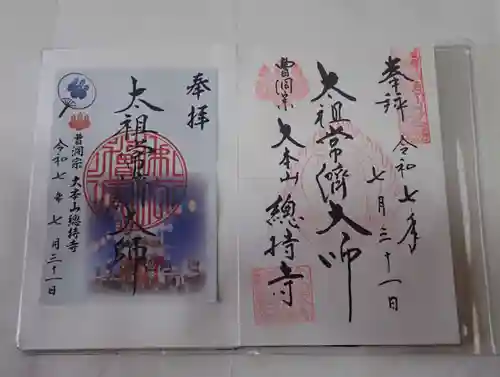 奉拝
令和七年
七月三十一日
太祖常濟大師
曹洞宗
大本山
總持寺
奉拝
太祖常濟大師
曹洞宗 大本山總持寺
令和七年七月三十一日